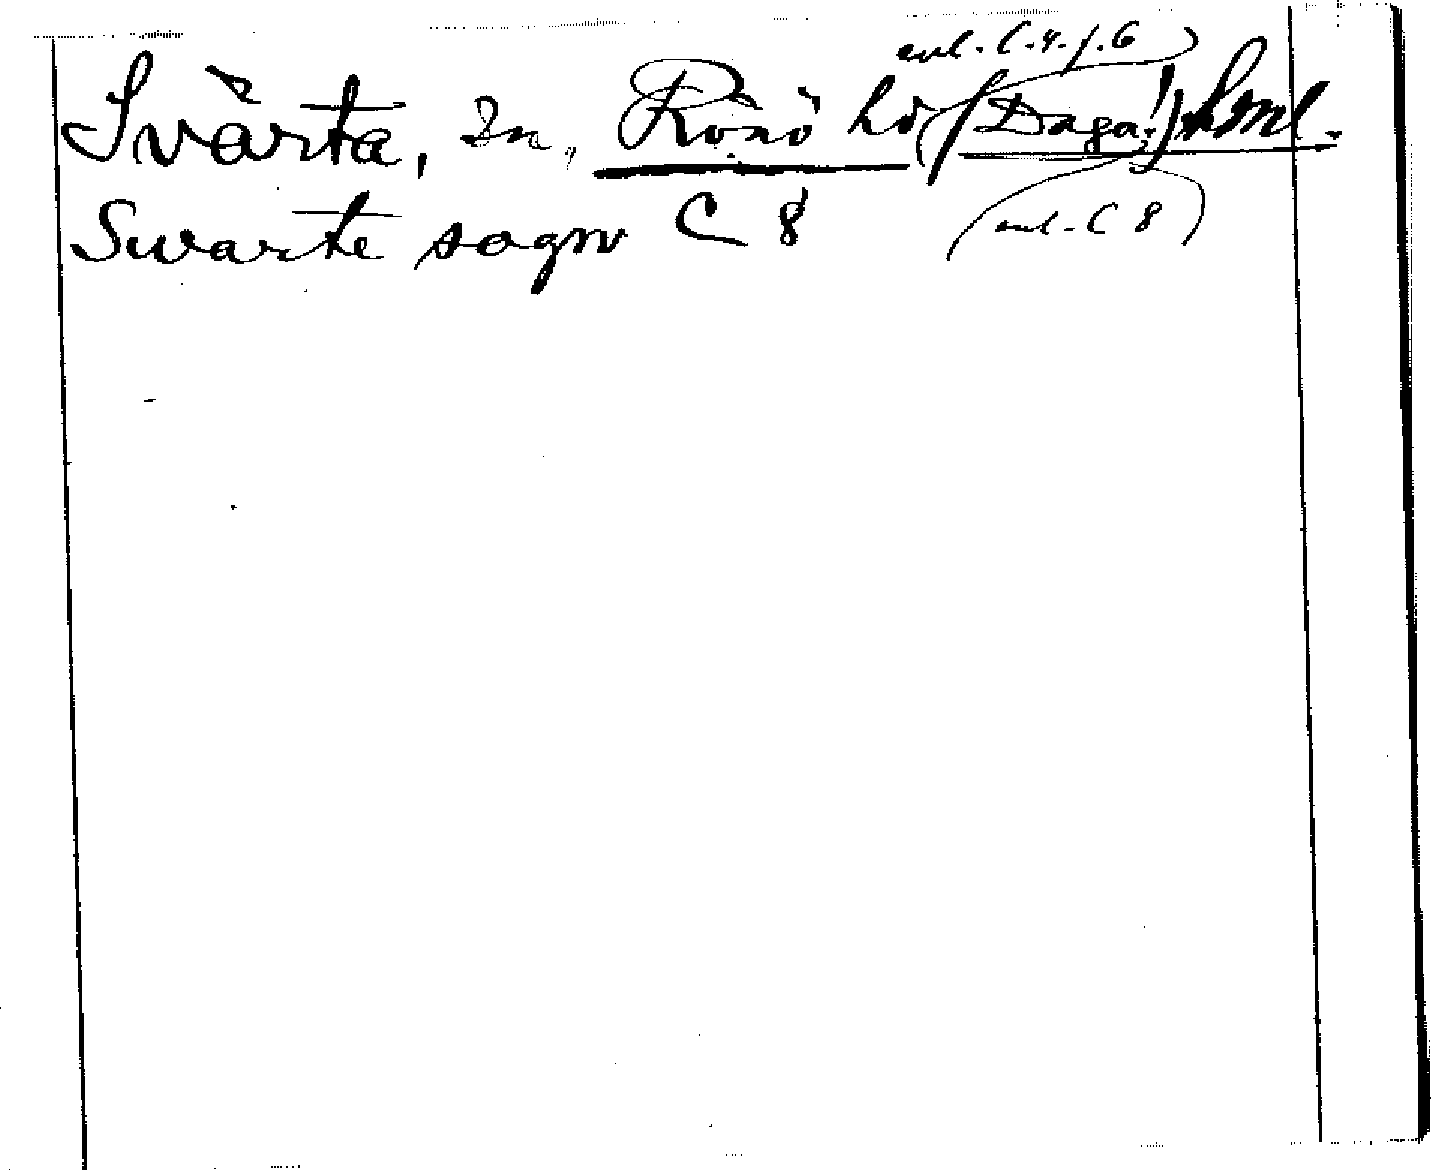 enl. C.4. f. 6
Svärta, sn, Rönö hd (Daga!) Söml.
Swarte sogn C 8 (enl. C 8)